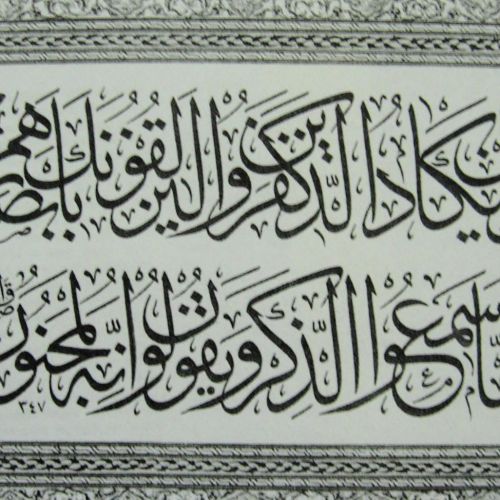 يكاد الذين كفروا ليزلقونك بابصرهم
لما سمعوا الذكر ويقولون انه لمجنون
٣٤٧